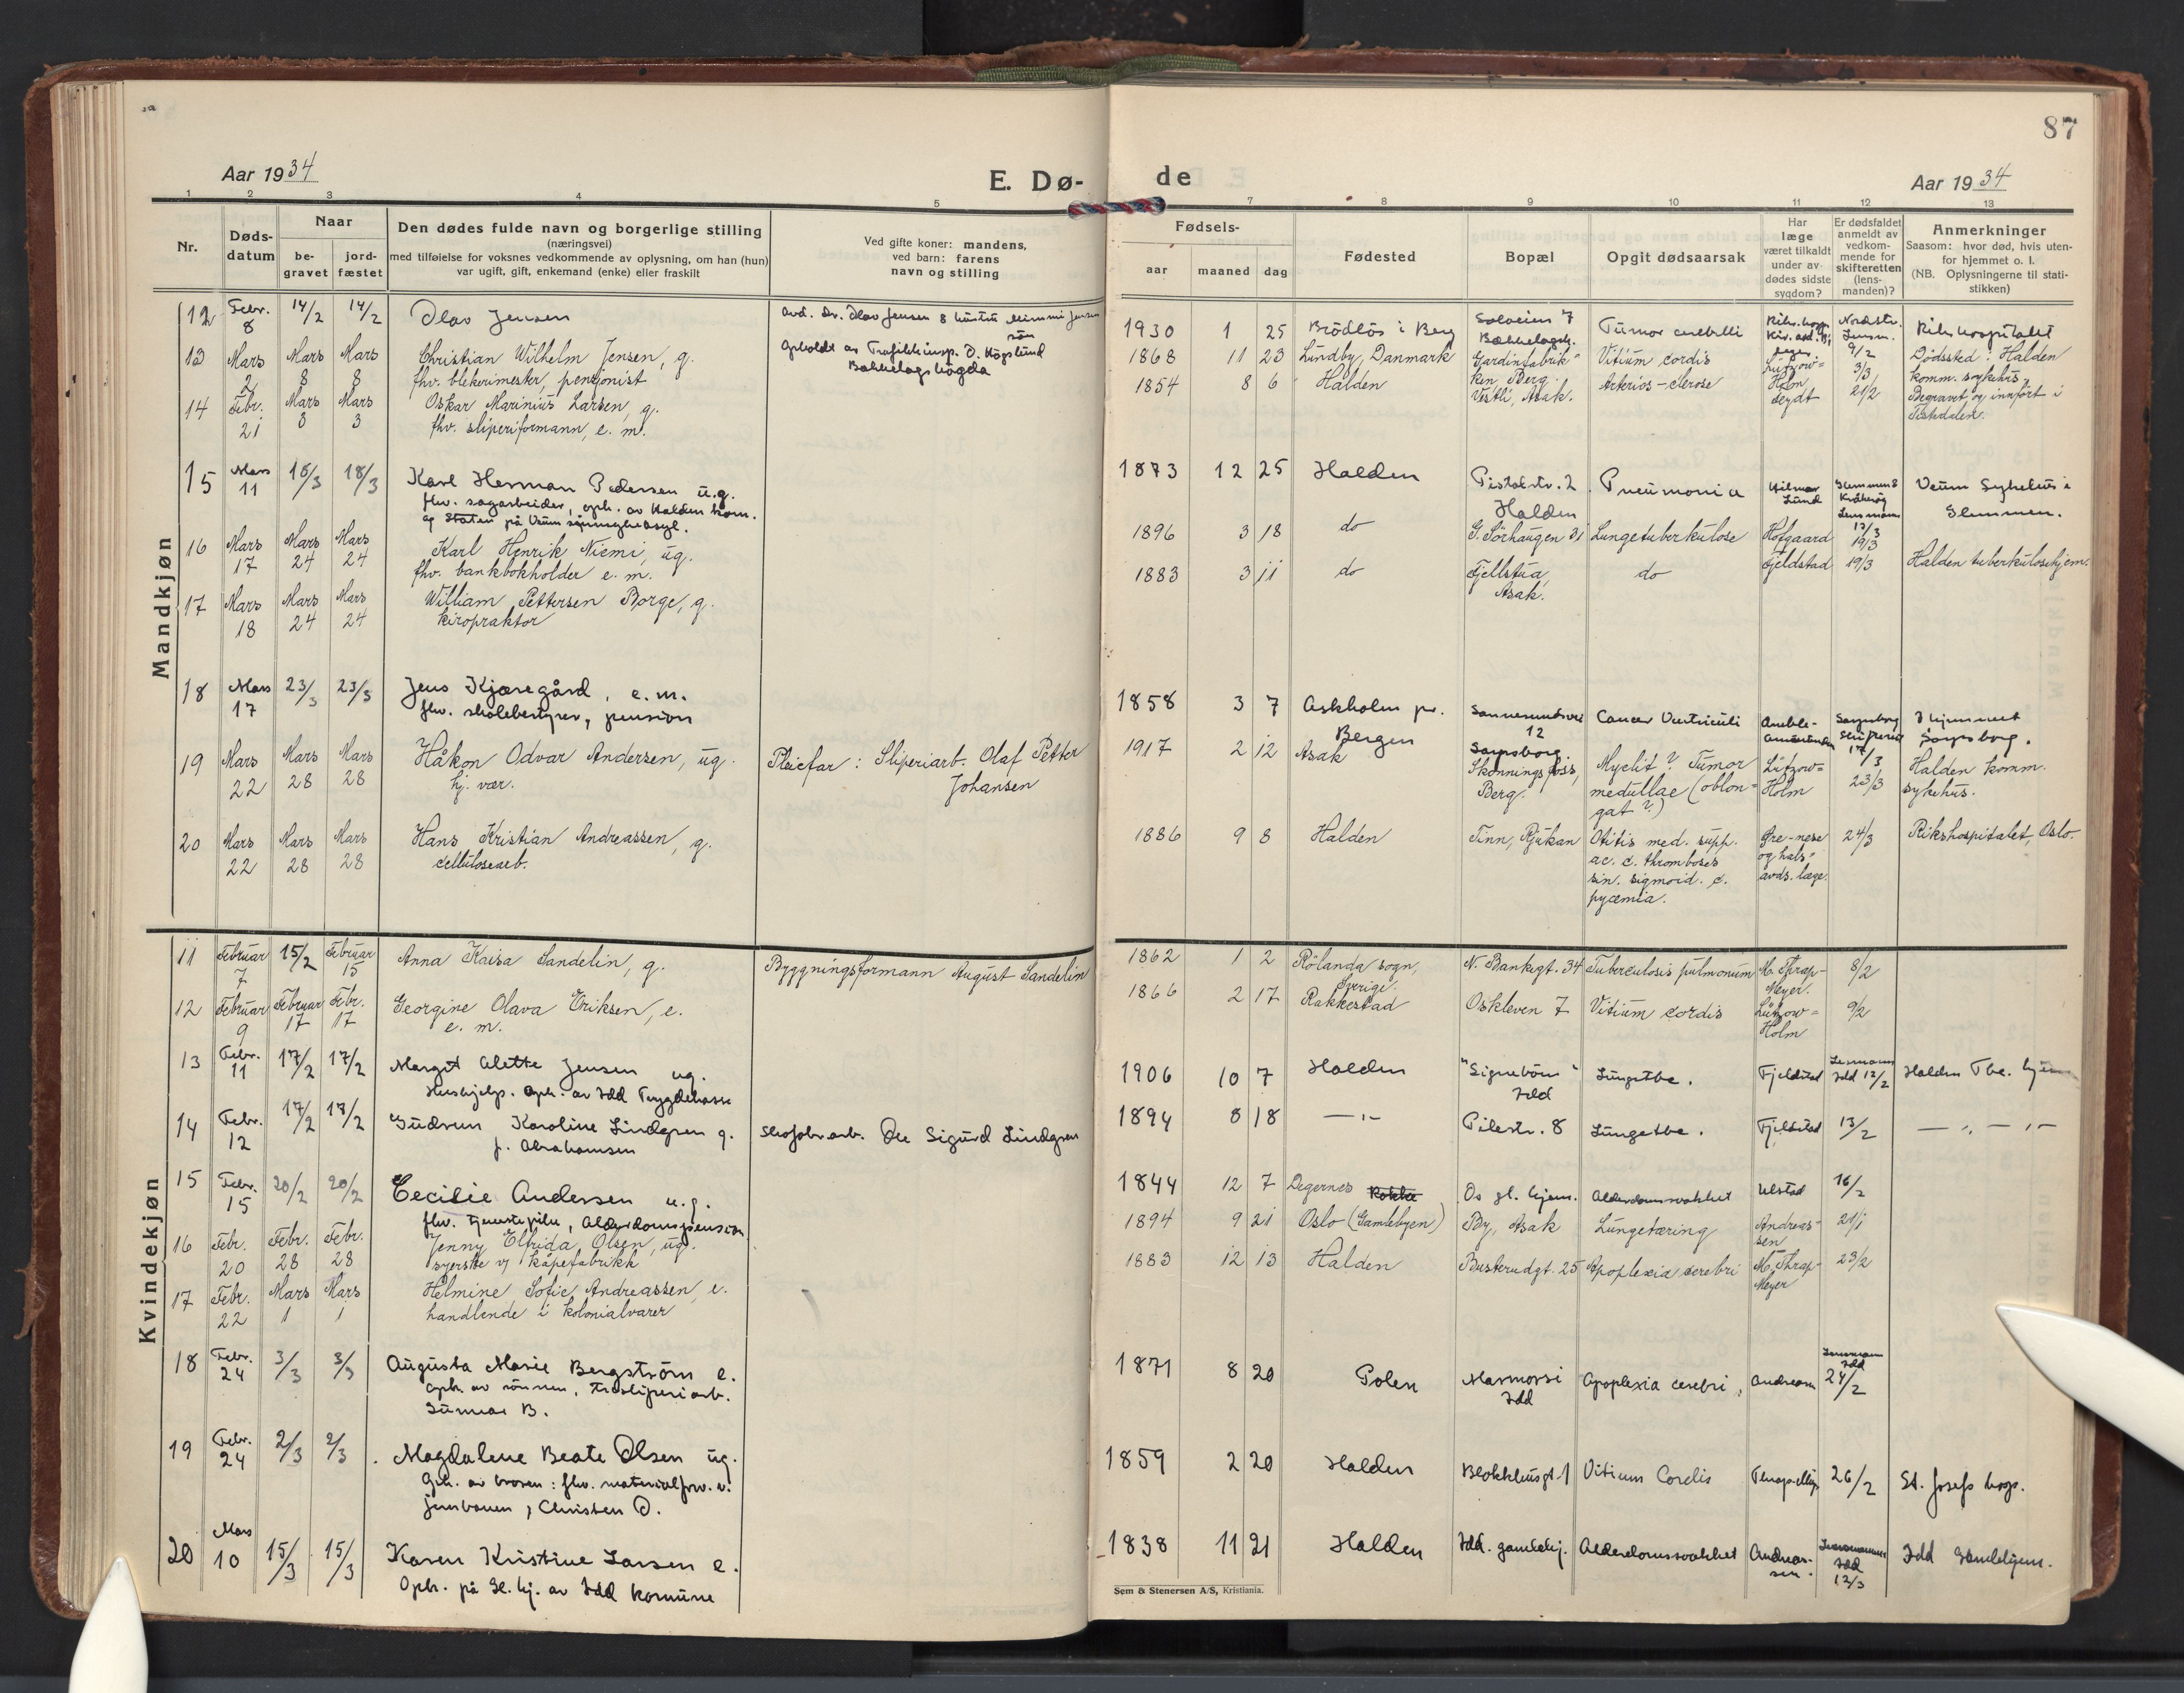 87
Aar 1934
E. Dø-
de
Aar 1934
1 2 3 4 5 7 8 9 10 11 12 13
Nr.
Døds-
datum
Naar
be-
gravet
jord-
fæstet
Den dødes fulde navn og borgerlige stilling
(næringsvei)
med tilføielse for voksnes vedkommende av oplysning, om han (hun)
var ugift, gift, enkemand (enke) eller fraskilt
Ved gifte koner: mandens,
ved barn: farens
navn og stilling
Fødsels-
aar maaned dag
Fødested
Bopæl
Opgit dødsaarsak
Har
læge
været tilkaldt
under av-
dødes sidste
sygdom?
Er dødsfaldet
anmeldt av
vedkom-
mende for
skifteretten
(lens-
manden)?
Anmerkninger
Saasom: hvor død, hvis uten-
for hjemmet o. l.
(NB. Oplysningerne til stati-
stikken)
Mandkjøn
12 Febr. 8 14/2 14/2 Olav Jensen
Olav Jensen & hustru Mimmi Jensen
1930 1 25 Brödlös i Berg Solveien 7 Bækkelagsh. Tumor cerebelli 9/2 Rikshospitalet
13 Mars 2 Mars 8 Mars 8 Christian Wilhelm Jensen, g.
fhv. blekerimester, pensjonist
Opholdt av Trafikkinsp. O. Högslund
Bækkelagshögda
1868 11 23 Lundby, Danmark Gardinfabrik-
ken, Berg. Vitium cordis Lützow-
Holm 3/3 Dödssted: Halden
komm. sykehus
14 Febr. 21 Mars 3 Mars 3 Oskar Marinius Larsen, g.
fhv. sliperiformann, e. m.
1854 8 6 Halden Vestli, Asak. Arterios-clerose 21/2 Begravet og innfört i
Tistedalen.
15 Mars 11 18/3 18/3 Karl Herman Pedersen u.g.
fhv. sagarbeider, oph. av Halden kom.
og Staten på Veum sinnsykeasyl.
1873 12 25 Halden Pistolstr. 2
Halden Pneumonia Hilmar
Lund Glemmen &
Kråkeröy
Lensmann
13/3 Veum Sykehus i
Glemmen.
16 Mars 17 Mars 24 Mars 24 Karl Henrik Niemi, ug.
fhv. bankbokholder e. m.
1896 3 18 do G. Sörhaugen 31 Lungetuberkulose Hofgaard 19/3
17 Mars 18 Mars 24 Mars 24 William Pettersen Borge, g.
kiropraktor
1883 3 11 do Fjellstua,
Asak. do Fjeldstad 19/3 Halden tuberkulosehjem.
18 Mars 17 23/3 23/3 Jens Kjæregård, e. m.
fhv. skolebestyrer, pension
1858 3 7 Askholm pr.
Bergen Sannesundsvei
12
Sarpsborg Cancer Ventriculi Sarpsborg
skifterett
17/3 I hjemmet
Sarpsborg.
19 Mars 22 Mars 28 Mars 28 Håkon Odvar Andersen, ug.
hj. vær.
Pleiefar: Sliperiarb. Olaf Petter
Johansen
1917 2 12 Asak Skonningsfoss,
Berg. Myelit? Tumor
medullae (oblon-
gat?) Lützow-
Holm 23/3 Halden komm.
sykehus.
20 Mars 22 Mars 28 Mars 28 Hans Kristian Andreassen, g.
cellulosearb.
1886 9 8 Halden Tinn, Rjukan Otitis med. supp.
ac. c. thromboses
sin. sigmoid. c.
pyæmia. Øre-nese
og hals-
avds. læge. 24/3 Rikshospitalet, Oslo.
Kvindekjøn
11 Februar 7 15/2 Februar 15 Anna Kaisa Sandelin, g.
Byggningsformann August Sandelin
1862 1 2 Rölanda sogn,
Sverige. N. Bankgt. 34 Tuberculosis pulmonum M. Thrap-
Meyer. 8/2
12 Februar 9 Februar 17 Febr. 17 Georgine Olava Eriksen, e.
e. m.
1866 2 17 Rakkestad Oskleven 7 Vitium cordis Lützow-
Holm 9/2
13 Febr. 11 17/2 17/2 Margit Alette Jensen ug.
Hushjelp. Oph. av Idd Trygdekasse
1906 10 7 Halden "Signebön"
Idd Lungetbc. Fjeldstad Lensmann
Idd 12/2 Halden Tbc. hjem
14 Febr. 12 17/2 17/2 Gudrun Karoline Lindgren g.
f. Abrahamsen
Skofabr.arb. Ole Sigurd Lindgren
1894 8 18 —"— Pilestr. 8 Lungetbc. Fjeldstad 13/2 —"—"—
15 Febr. 15 20/2 20/2 Cecilie Andersen u.g.
fhv. tjenestepike, Alderdomspension
1844 12 7 Degernes Os gl. hjem. Alderdomssvakhet Ulstad 16/2
16 Febr. 20 Febr. 28 Febr. 28 Jenny Elfrida Olsen, ug.
syerske v/ kåpefabrikk
1894 9 21 Oslo (Gamlebyen) By, Asak Lungetæring Andreas-
sen 21/1
17 Febr. 22 Mars 1 Mars 1 Helmine Sofie Andreassen, e.
handlende i kolonialvarer
1883 12 13 Halden Busterudgt. 25 Apoplexia cerebri M. Thrap-
Meyer 23/2
18 Febr. 24 3/3 3/3 Augusta Marie Bergström e.
Oph. av sönnen, Tresliperiarb.
Gunnar B.
1871 8 20 Polen Marmorsi
Idd Apoplexia cerebri, Andreassen Lensmann
Idd
24/2
19 Febr. 24 2/3 2/3 Magdalene Beate Olsen ug.
Oph. av broren: fhv. materialforv. v.
jernbanen, Christen O.
1859 2 20 Halden Blokkhusgt. 1 Vitium Cordis 26/2 St. Josefs hosp.
20 Mars 10 15/3 15/3 Karen Kristine Larsen e.
Oph. på Gl. hj. av Idd komune
1838 11 21 Halden Idd. gamlehj. Alderdomssvakhet Andreas-
sen. Lensmannen
Idd
12/3 Idd Gamlehjem.
Sem & Stenersen A/S, Kristiania.